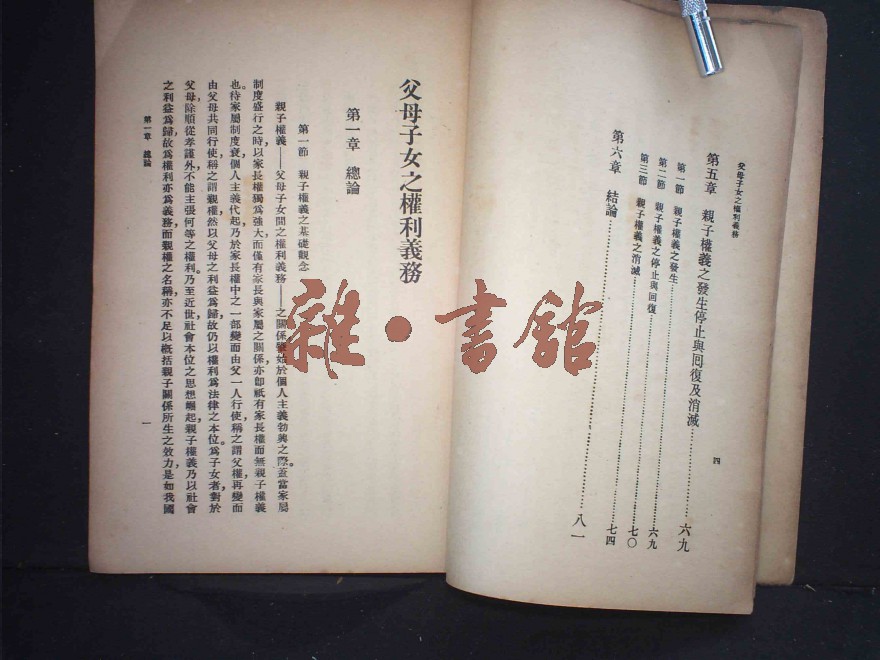 父母子女之權利義務
第五章　親子權義之發生停止與回復及消滅……六九
第一節　親子權義之發生……六九
第二節　親子權義之停止與回復……七〇
第三節　親子權義之消滅……七四
第六章　結論……八一
四
父母子女之權利義務
第一章　總論
第一節　親子權義之基礎觀念
親子權義——父母子女間之權利義務——之關係，肇始於個人主義勃興之際。蓋當家屬
制度盛行之時，以家長權獨爲強大，而僅有家長與家屬之關係，亦卽祇有家長權而無親子權義
也。待家屬制度衰，個人主義代起，乃於家長權中之一部變而由父一人行使，稱之謂父權，再變而
由父母共同行使，稱之謂親權，然以父母之利益爲歸，故仍以權利爲法律之本位。爲子女者，對於
父母，除順從孝謹外，不能主張何等之權利。乃至近世社會本位之思想崛起，親子權義乃以社會
之利益爲歸，故爲權利亦爲義務，而親權之名稱，亦不足以概括親子關係所生之效力，是如我國
第一章　總論
一
雜・書館